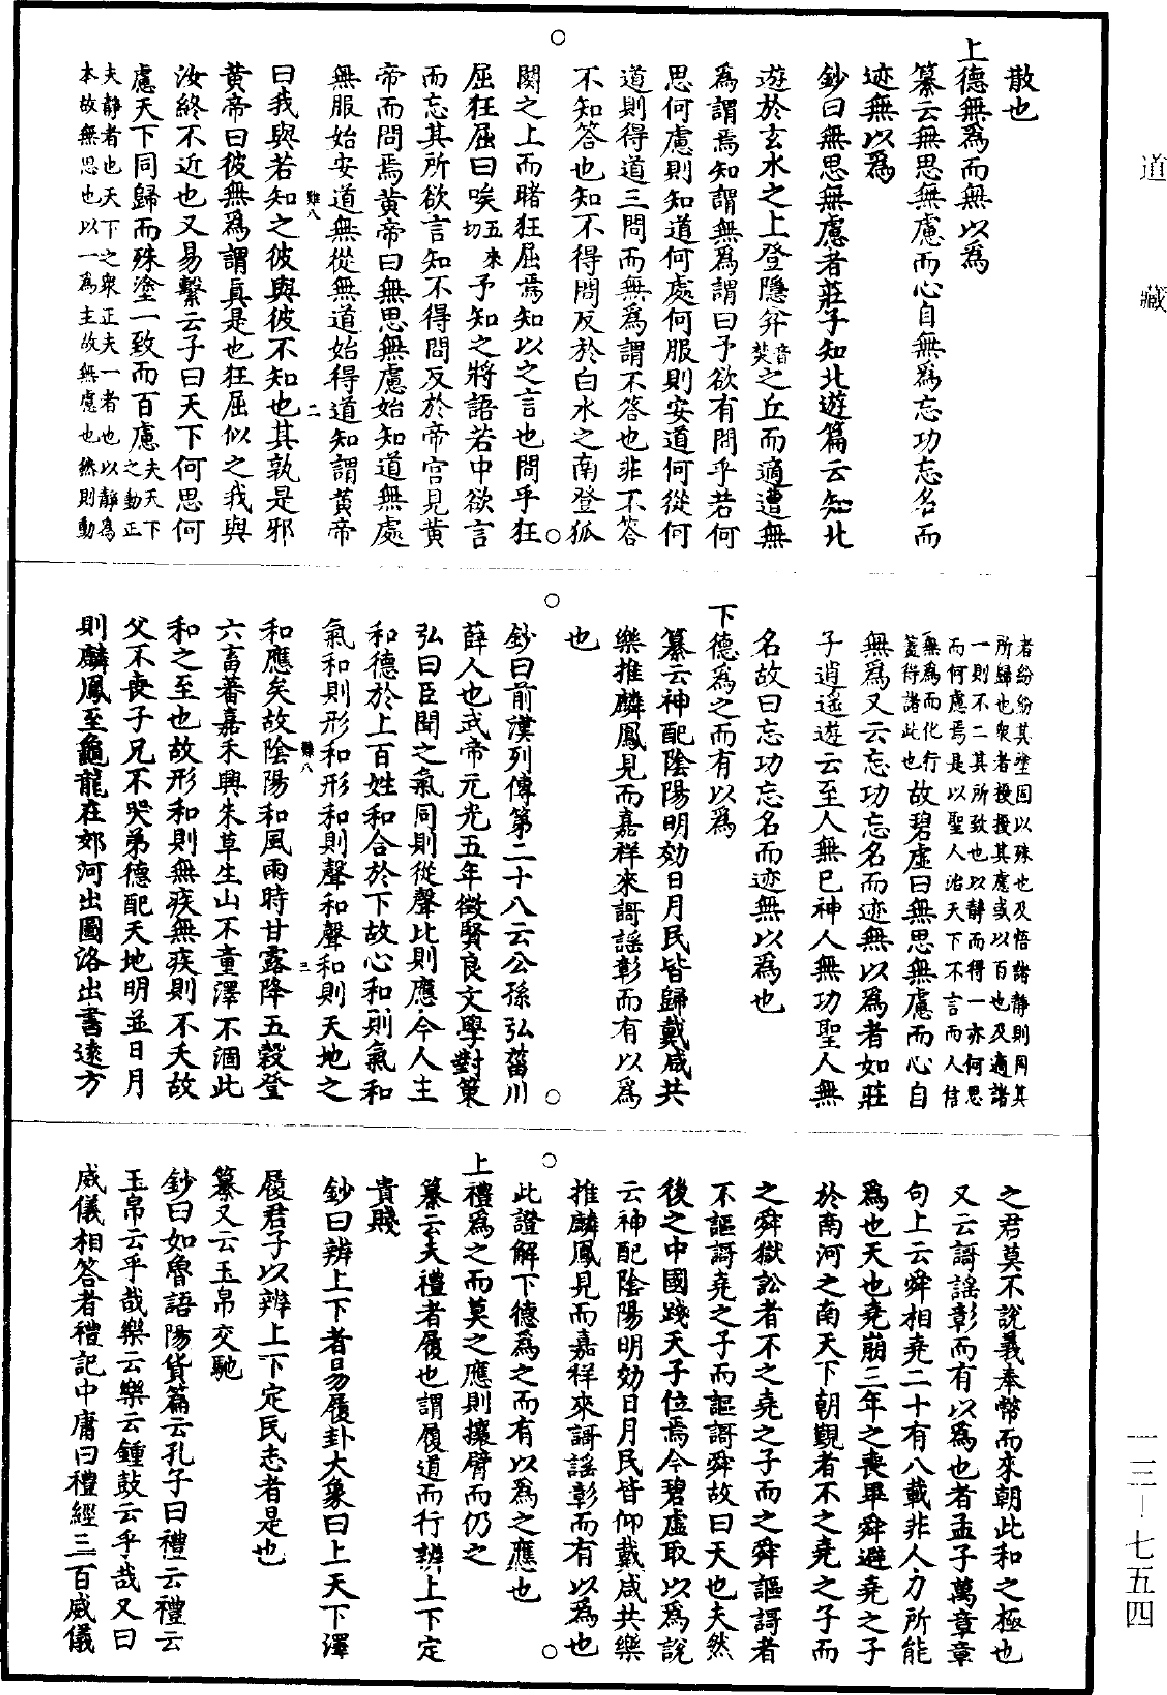 道藏
散也
上德無為而無以為
纂云無思無慮而心自無為忘功忘名而
迹無以為
鈔曰無思無慮者莊子知北遊篇云知北
遊於玄水之上登隱弅音焚之丘而適遭無
為謂焉知謂無為謂曰予欲有問乎若何
思何慮則知道何處何服則安道何從何
道則得道三問而無為謂不答也非不答
不知答也知不得問反於白水之南登狐
闋之上而睹狂屈焉知以之言也問乎狂
屈狂屈曰唉五來切予知之將語若中欲言
而忘其所欲言知不得問反於帝宮見黃
帝而問焉黃帝曰無思無慮始知道無處
無服始安道無從無道始得道知謂黃帝
難八 二
曰我與若知之彼與彼不知也其孰是邪
黃帝曰彼無為謂真是也狂屈似之我與
汝終不近也又易繫云子曰天下何思何
慮天下同歸而殊塗一致而百慮夫天下之動正
夫靜者也天下之衆正夫一者也以靜為
本故無思也以一為主故無慮也然則動
者紛紛其塗固以殊也及悟諸靜則同其
所歸也衆者擾擾其慮或以百也及適諸
一則不二其所致也以靜而得一亦何思
而何慮焉是以聖人治天下不言而人信
無為而化行蓋得諸此也故碧虛曰無思無慮而心自
無為又云忘功忘名而迹無以為者如莊
子逍遙遊云至人無已神人無功聖人無
名故曰忘功忘名而迹無以為也
下德為之而有以為
纂云神配陰陽明効日月民皆歸戴咸共
樂推麟鳳見而嘉祥來謌謠彰而有以為
也
鈔曰前漢列傳第二十八云公孫弘菑川
薛人也武帝元光五年徵賢良文學對策
弘曰臣聞之氣同則從聲比則應今人主
和德於上百姓和合於下故心和則氣和
氣和則形和形和則聲和聲和則天地之
難八 三
和應矣故陰陽和風雨時甘露降五穀登
六畜蕃嘉禾興朱草生山不童澤不涸此
和之至也故形和則無疾無疾則不夭故
父不喪子兄不哭弟德配天地明並日月
則麟鳳至龜龍在郊河出圖洛出書遠方
之君莫不說義奉幣而來朝此和之極也
又云謌謠彰而有以為也者孟子萬章章
句上云舜相堯二十有八載非人力所能
為也天也堯崩三年之喪畢舜避堯之子
於南河之南天下朝覲者不之堯之子而
之舜獄訟者不之堯之子而之舜謳謌者
不謳謌堯之子而謳謌舜故曰天也夫然
後之中國踐天子位焉今碧虛取以為說
云神配陰陽明効日月民皆仰戴咸共樂
推麟鳳見而嘉祥來謌謠彰而有以為也
此證解下德為之而有以為之應也
上禮為之而莫之應則攘臂而仍之
纂云夫禮者履也謂履道而行辨上下定
貴賤
鈔曰辨上下者易履卦大象曰上天下澤
履君子以辨上下定民志者是也
纂又云玉帛交馳
鈔曰如魯語陽貨篇云孔子曰禮云禮云
玉帛云乎哉樂云樂云鍾鼓云乎哉又曰
威儀相答者禮記中庸曰禮經三百威儀
一三—七五四